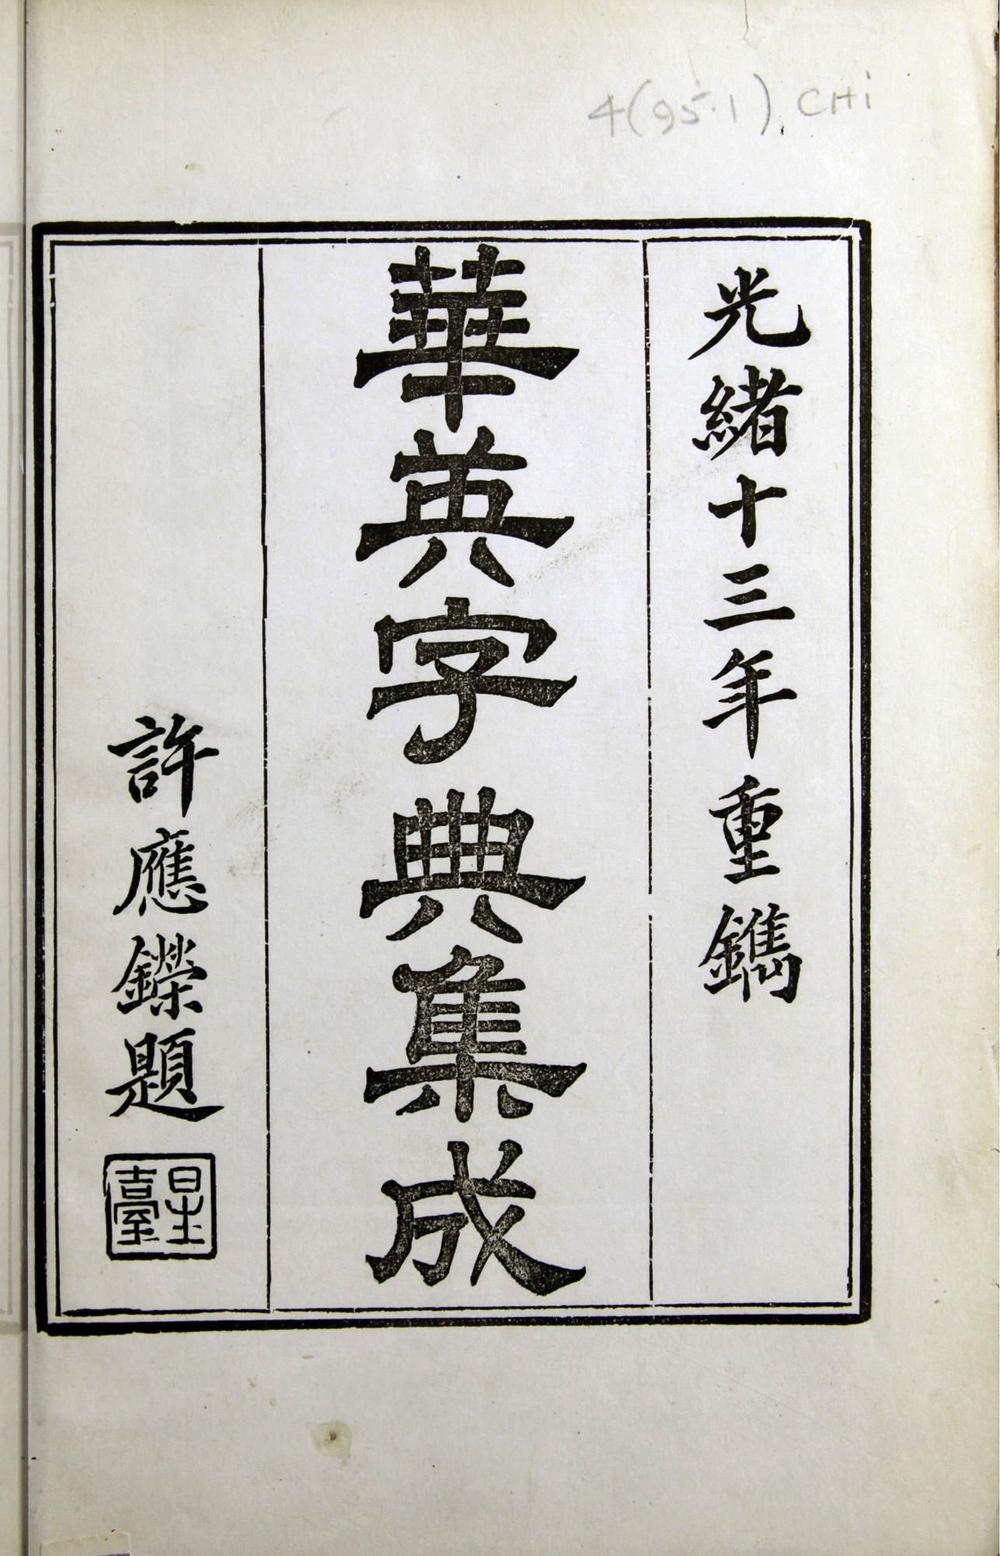 4(95.1). CHi
光緒十三年重鐫
華英字典集成
許應鑅題
星臺